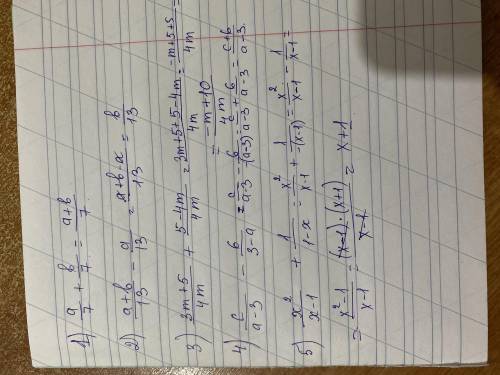 1) a/7 + b/7 = (a+b)/7
2) (a+b)/13 - a/13 = (a+b-a)/13 = b/13
3) (3m+5)/4m + (5-4m)/4m = (3m+5+5-4m)/4m = (-m+5+5)/4m =
= (-m+10)/4m
4) c/(a-3) - b/(3-a) = c/(a-3) - b/-(a-3) = c/(a-3) + b/(a-3) = (c+b)/(a-3)
5) x²/(x-1) + 1/(1-x) = x²/(x-1) + 1/-(x-1) = x²/(x-1) - 1/(x-1) =
= (x²-1)/(x-1) = (x-1)·(x+1)/(x-1) = x+1